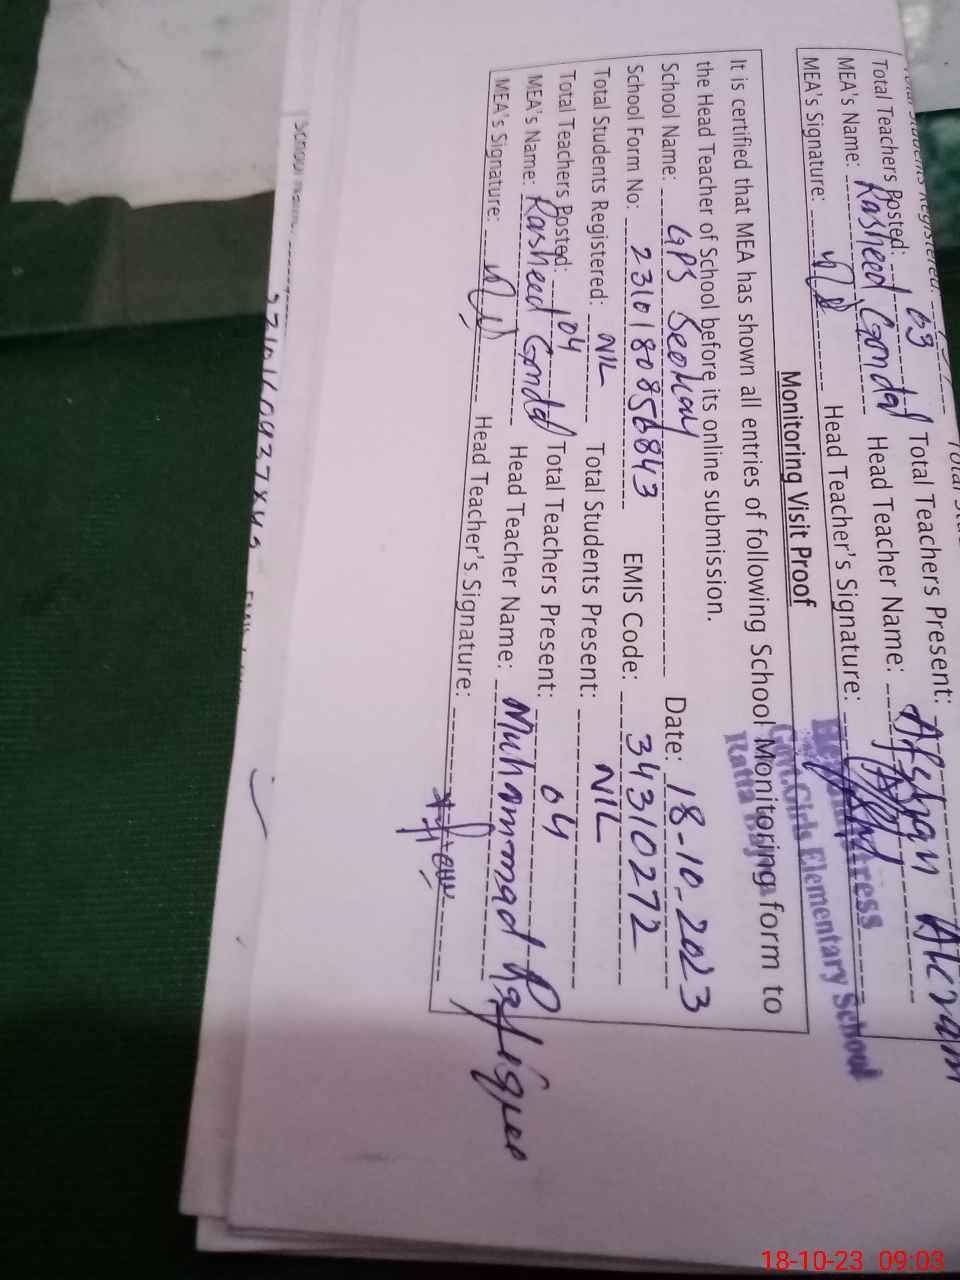 Total Teachers Posted: 03 Total Teachers Present:
MEA's Name: Rasheed Gondal Head Teacher Name: Afshan Akram
MEA's Signature: Head Teacher's Signature:
Govt. Girls Elementary School
Monitoring Visit Proof
It is certified that MEA has shown all entries of following School Monitoring form to
the Head Teacher of School before its online submission.
School Name: GPS Date: 18-10-2023
School Form No: 2310180856843 EMIS Code: 34310272
Total Students Registered: NIL Total Students Present: NIL
Total Teachers Posted: 04 Total Teachers Present: 04
MEA's Name: Rasheed Gondal Head Teacher Name: Muhammad Rafique
MEA's Signature: Head Teacher's Signature:
18-10-23 09:03